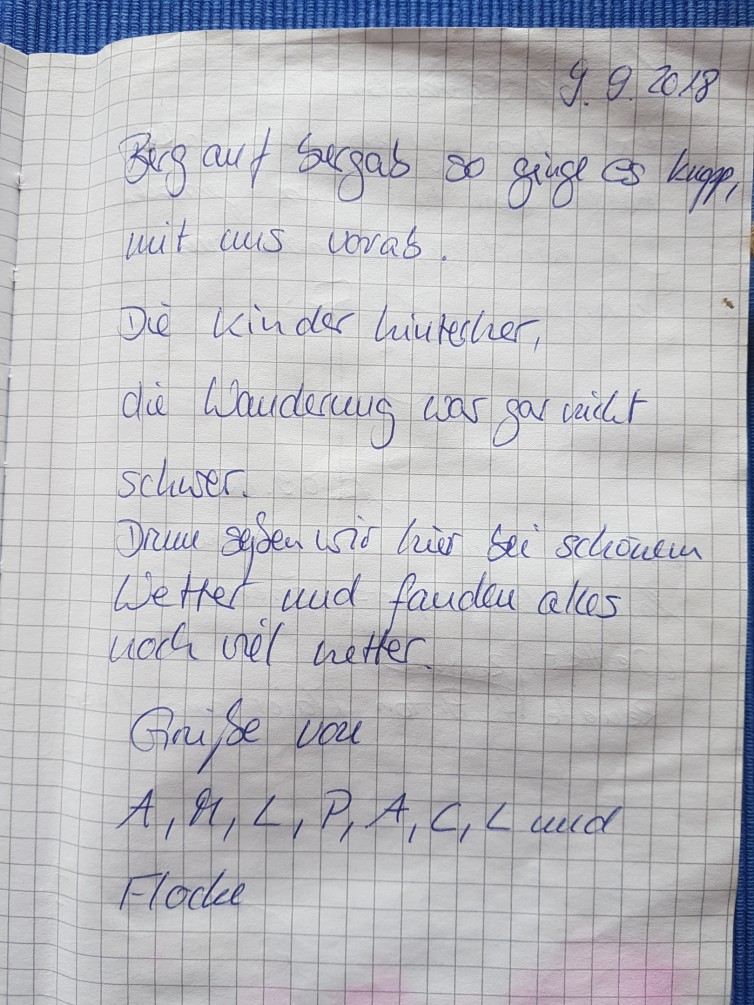 9.9.2018
Berg auf bergab so ginge es knapp,
mit uns vorab.
Die Kinder hinterher,
die Wanderung war gar nicht
schwer.
Drum saßen wir hier bei schönem
Wetter und fanden alles
noch viel netter.
Grüße von
A, M, L, P, A, C, L und
Flocke